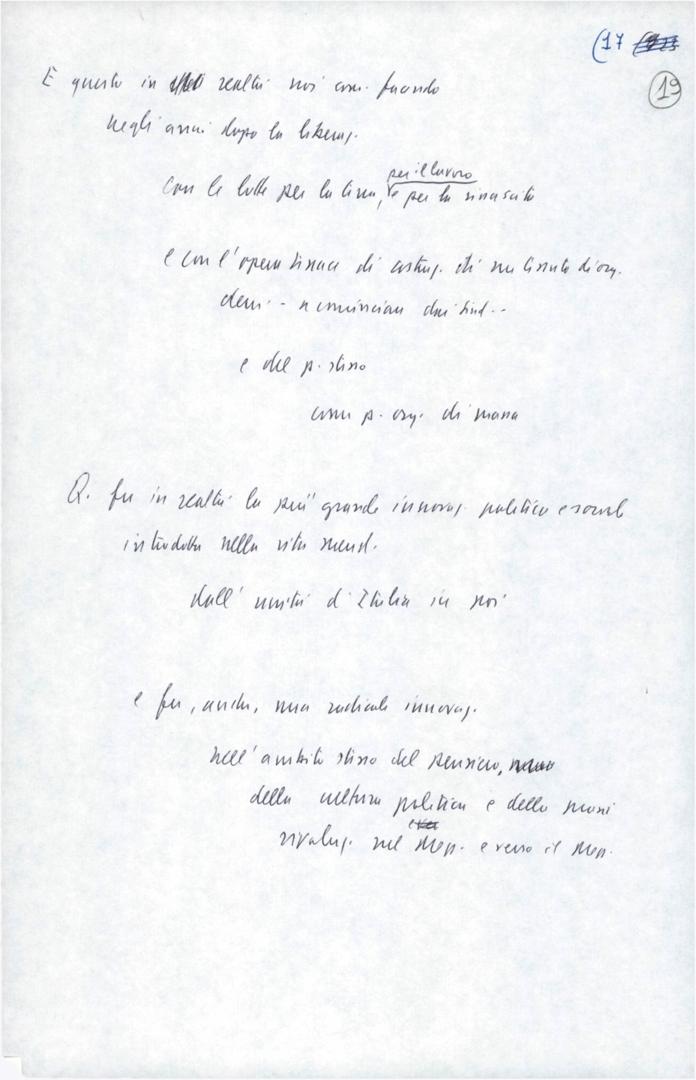 (17
19
E questo in realtà noi com. facendo
negli anni dopo la liberaz.
per il lavoro
con le lotte per la terra, e per la rinascita
e con l'opera tenace di costruz. di un tessuto di org.
dem. - a cominciare dai sind. -
e del p. stesso
come p. org. di massa
Q. fu in realtà la più grande innovaz. politica e sociale
introdotta nella vita merid.
dall' unità d'Italia in poi
e fu, anche, una radicale innovaz.
nell'ambito stesso del pensiero,
della cultura politica e delle
rivoluz. nel Mezz. e verso il Mezz.